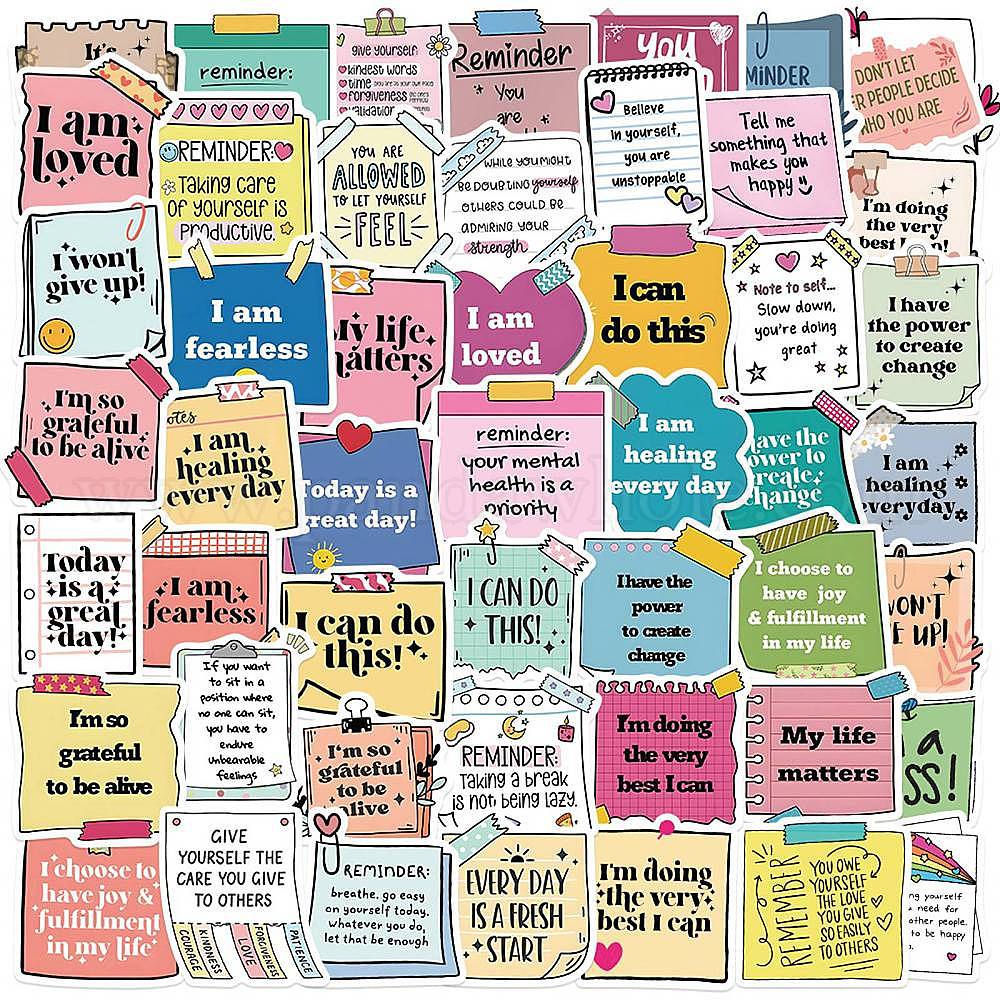 It's
reminder:
give yourself
kindest words
time
forgiveness
validation
Reminder
You
are
YOU
DON'T LET
PEOPLE DECIDE
WHO YOU ARE
I am
loved
REMINDER:
Taking care
of yourself is
productive.
YOU ARE
ALLOWED
TO LET YOURSELF
FEEL
WHILE YOU MIGHT
BE DOUBTING yourself
OTHERS COULD BE
ADMIRING YOUR
strength
Believe
in yourself,
you are
unstoppable
Tell me
something that
makes you
happy
I'm doing
the very
best I
I won't
give up!
I am
fearless
My life
matters
I am
loved
I can
do this
Note to self...
Slow down,
you're doing
great
I have
the power
to create
change
I'm so
grateful
to be alive
notes
I am
healing
every day
Today is a
great day!
reminder:
your mental
health is a
priority
I am
healing
every day
have the
power to
create
change
I am
healing
everyday
Today
is a
great
day!
I am
fearless
I can do
this!
I CAN DO
THIS!
I have the
power
to create
change
I choose to
have joy
& fulfillment
in my life
WON'T
UP!
I'm so
grateful
to be alive
If you want
to sit in a
position where
no one can sit,
you have to
endure
unbearable
feelings
I'm so
grateful
to be
alive
REMINDER:
Taking a break
is not being lazy.
I'm doing
the very
best I can
My life
matters
a
SS!
I choose to
have joy &
fulfillment
in my life
GIVE
YOURSELF THE
CARE YOU GIVE
TO OTHERS
COURAGE
KINDNESS
LOVE
FORGIVENESS
PATIENCE
REMINDER:
breathe. go easy
on yourself today.
whatever you do,
let that be enough
EVERY DAY
IS A FRESH
START
I'm doing
the very
best I can
REMEMBER
YOU OWE
YOURSELF
THE LOVE
YOU GIVE
SO EASILY
TO OTHERS
ng yourself
need for
other people.
to be happy